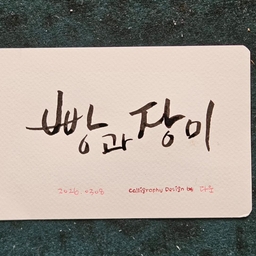 빵과 장미
Calligraphy Design by